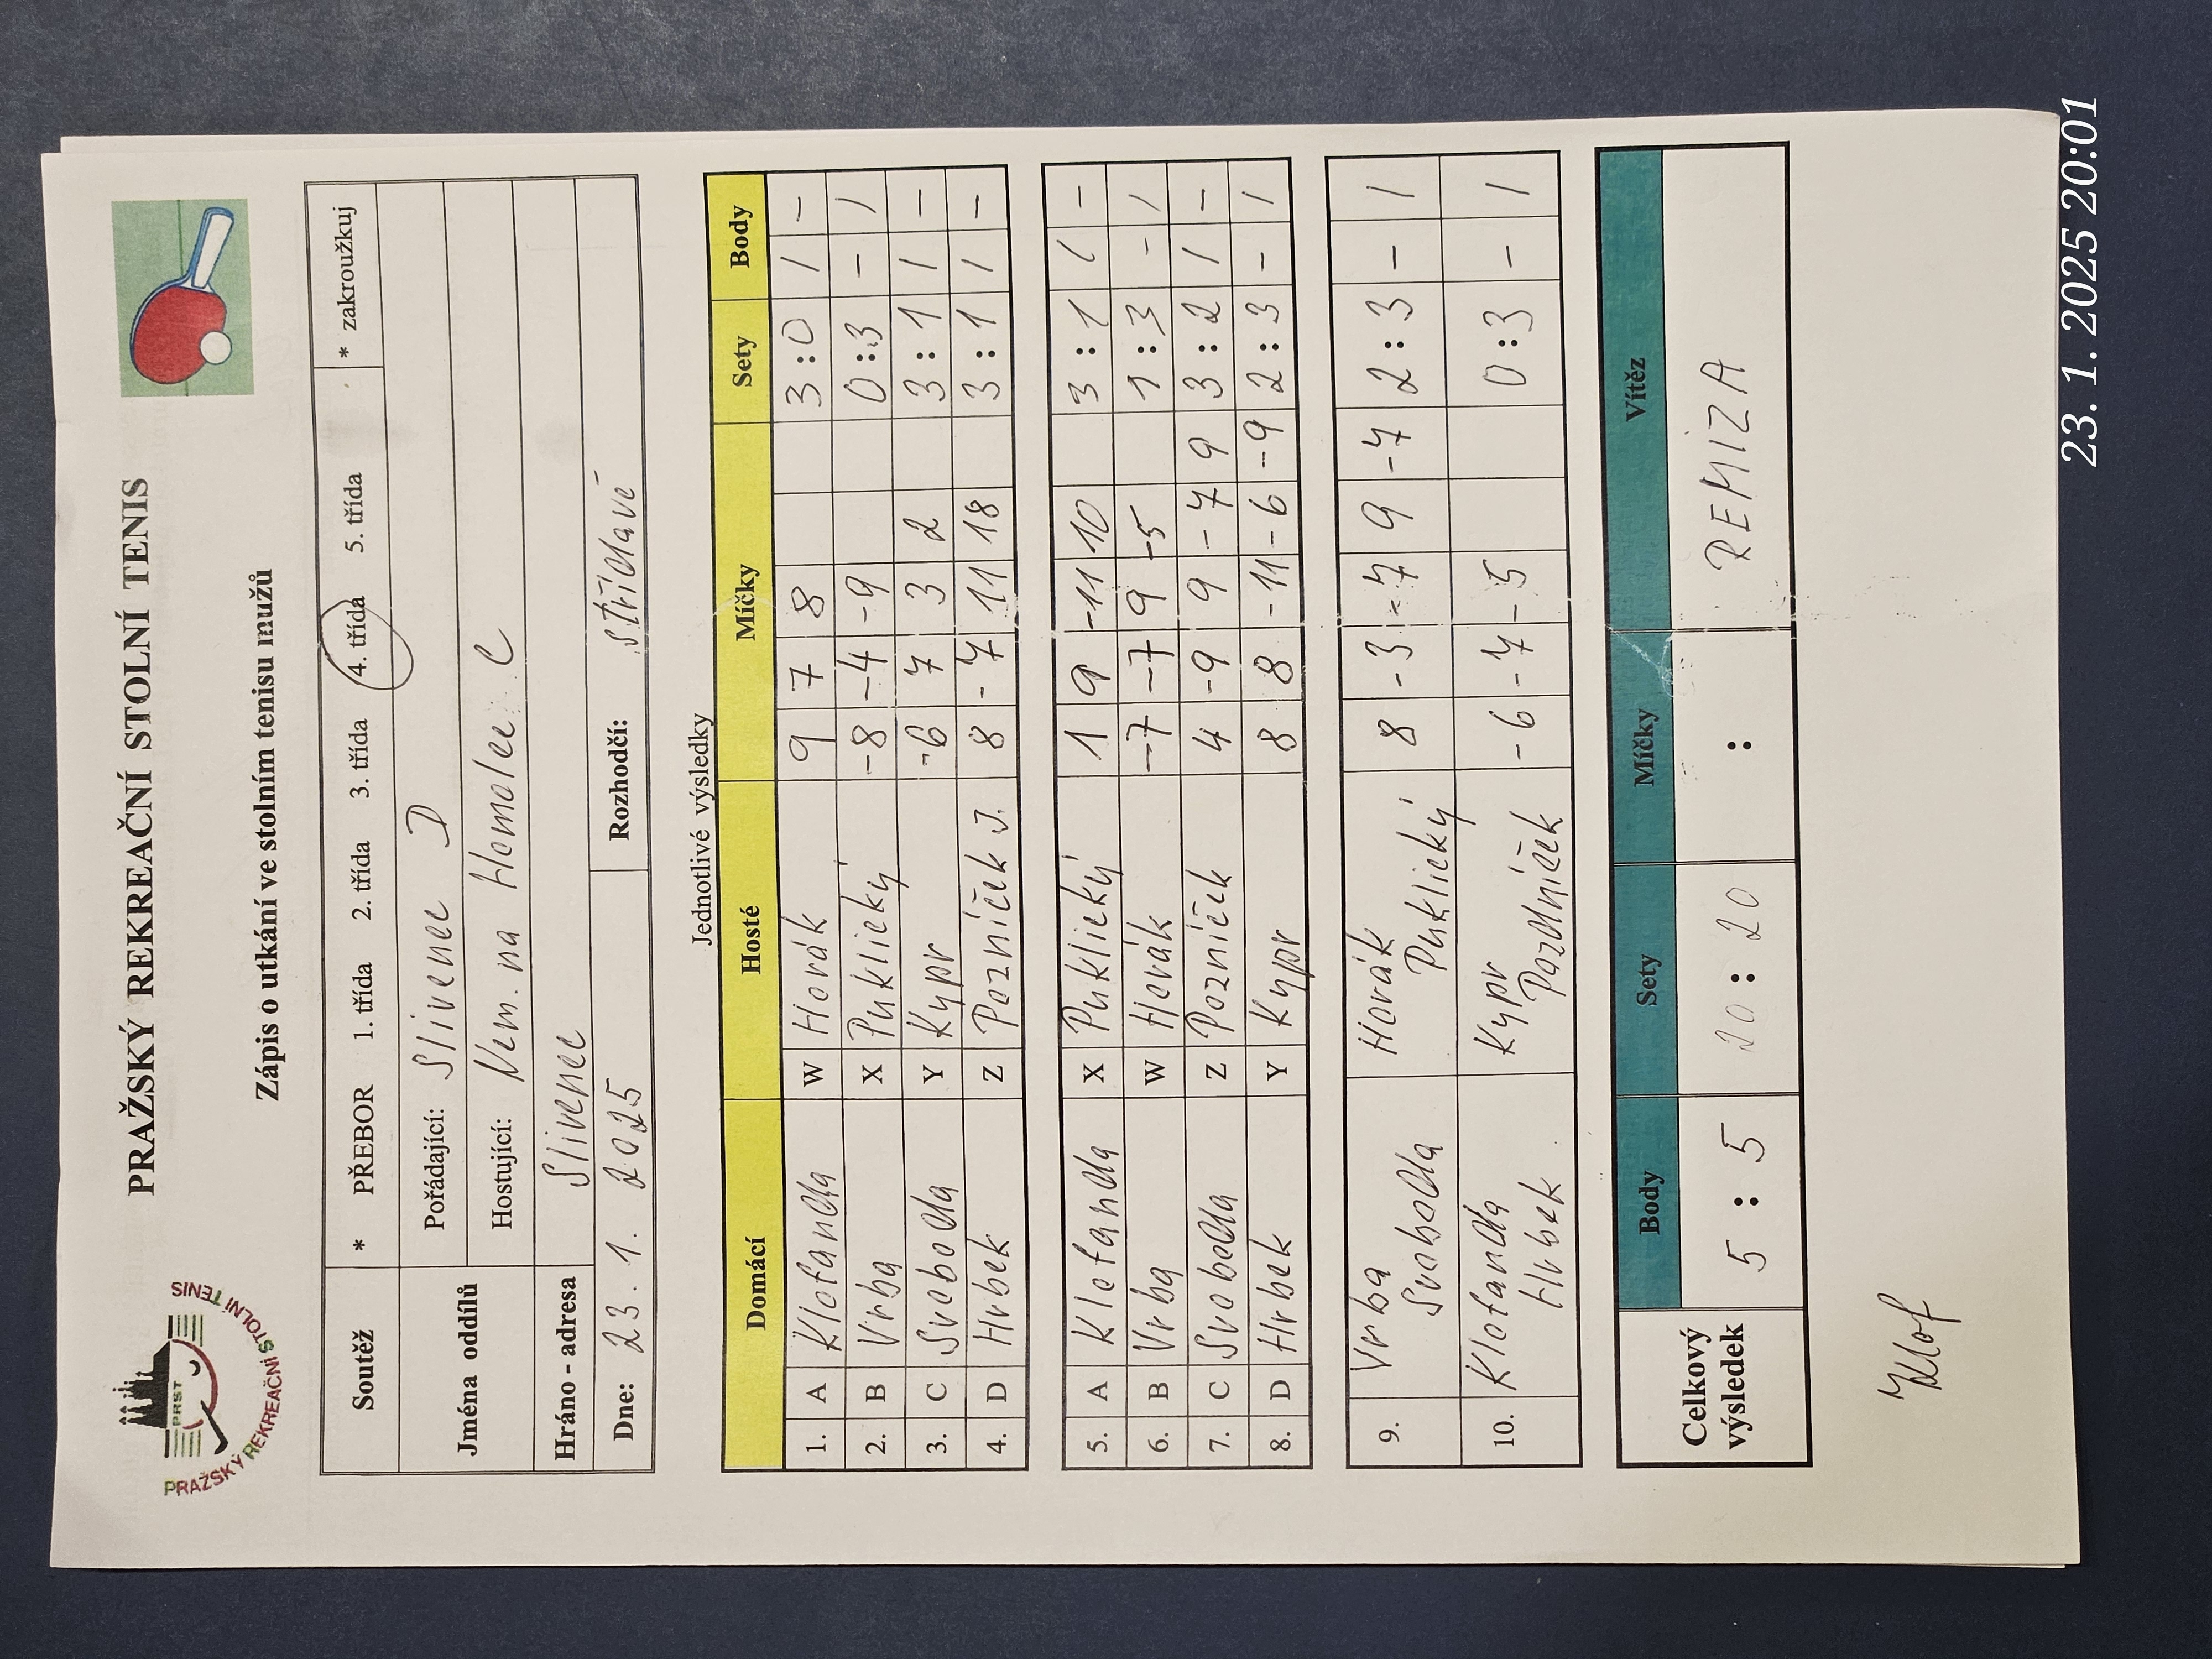 PRAŽSKÝ REKREAČNÍ STOLNÍ TENIS
PRST
PRAŽSKÝ REKREAČNÍ STOLNÍ TENIS
Zápis o utkání ve stolním tenisu mužů
Soutěž * PŘEBOR 1. třída 2. třída 3. třída 4. třída 5. třída * zakroužkuj
Jména oddílů Pořádající: Slivenec D
Hostující: Nem. na Homolce C
Hráno - adresa Slivenec
Dne: 23. 1. 2025 Rozhodčí: střídavě
Jednotlivé výsledky
Domácí Hosté Míčky Sety Body
1. A Klofanda W Horák 9 7 8 3:0 1 -
2. B Vrba X Puklický -8 -4 -9 0:3 - 1
3. C Svoboda Y Kypr -6 7 3 2 3:1 1 -
4. D Hrbek Z Pozníček J. 8 -7 11 18 3:1 1 -
5. A Klofanda X Puklický 1 9 -11 10 3:1 1 -
6. B Vrba W Horák -7 -7 9 -5 1:3 - 1
7. C Svoboda Z Pozníček 4 -9 9 -7 9 3:2 1 -
8. D Hrbek Y Kypr 8 8 -11 -6 -9 2:3 - 1
9. Vrba Svoboda Horák Puklický 8 -3 -7 9 -7 2:3 - 1
10. Klofanda Hrbek Kypr Pazdníček -6 -7 -5 0:3 - 1
Celkový výsledek Body Sety Míčky Vítěz
5 : 5 20 : 20 : REMÍZA
Klof
23. 1. 2025 20:01